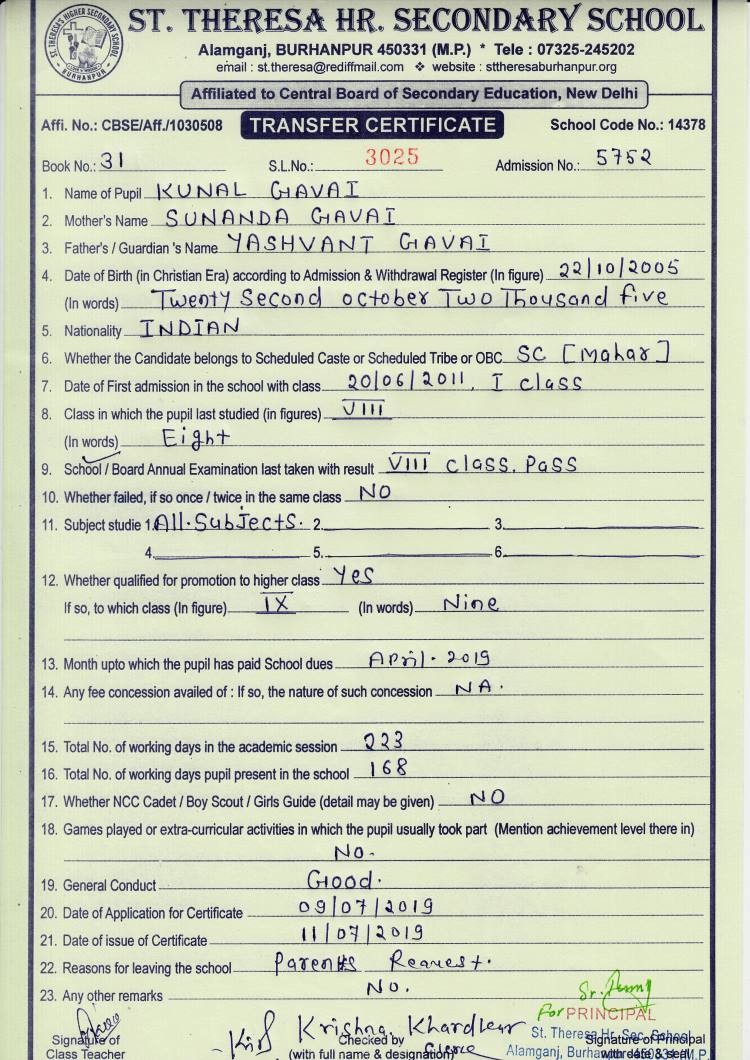 ST. THERESA HR. SECONDARY SCHOOL
Alamganj, BURHANPUR 450331 (M.P.) * Tele : 07325-245202
email : st.theresa@rediffmail.com ❖ website : sttheresaburhanpur.org
Affiliated to Central Board of Secondary Education, New Delhi
Affi. No.: CBSE/Aff./1030508 TRANSFER CERTIFICATE School Code No.: 14378
Book No.: 31 S.L.No.: 3025 Admission No.: 5752
1. Name of Pupil KUNAL GAVAI
2. Mother's Name SUNANDA GAVAI
3. Father's / Guardian 's Name YASHVANT GAVAI
4. Date of Birth (in Christian Era) according to Admission & Withdrawal Register (In figure) 22/10/2005
(In words) Twenty Second october Two Thousand five
5. Nationality INDIAN
6. Whether the Candidate belongs to Scheduled Caste or Scheduled Tribe or OBC SC [Mahar]
7. Date of First admission in the school with class 20/06/2011, I class
8. Class in which the pupil last studied (in figures) VIII
(In words) Eight
9. School / Board Annual Examination last taken with result VIII class. Pass
10. Whether failed, if so once / twice in the same class NO
11. Subject studie 1. All. Subjects. 2. 3.
4. 5. 6.
12. Whether qualified for promotion to higher class Yes
If so, to which class (In figure) IX (In words) Nine
13. Month upto which the pupil has paid School dues April. 2019
14. Any fee concession availed of : If so, the nature of such concession NA.
15. Total No. of working days in the academic session 223
16. Total No. of working days pupil present in the school 168
17. Whether NCC Cadet / Boy Scout / Girls Guide (detail may be given) NO
18. Games played or extra-curricular activities in which the pupil usually took part (Mention achievement level there in)
No.
19. General Conduct Good.
20. Date of Application for Certificate 09/07/2019
21. Date of issue of Certificate 11/07/2019
22. Reasons for leaving the school Parents Request.
23. Any other remarks No.
For PRINCIPAL
Krishna Khardkar
St. Theresa Hr. Sec. School
Signature of Checked by Signature of Principal
Class Teacher (with full name & designation) with date & seal
Alamganj,